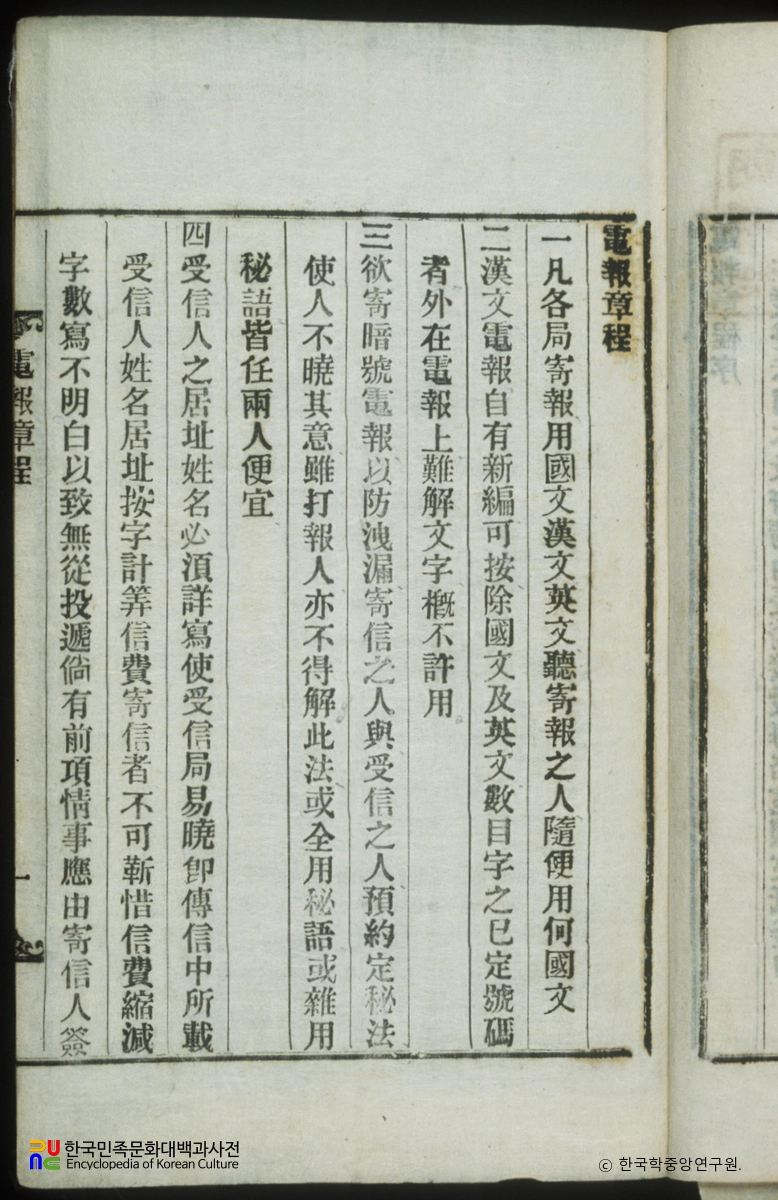 電報章程
一凡各局寄報用國文漢文英文聽寄報之人隨便用何國文
二漢文電報自有新編可按除國文及英文數目字之已定號碼
者外在電報上難解文字槪不許用
三欲寄暗號電報以防洩漏寄信之人與受信之人預約定秘法
使人不曉其意雖打報人亦不得解此法或全用秘語或雜用
秘語皆任兩人便宜
四受信人之居址姓名必須詳寫使受信局易曉卽傳信中所載
受信人姓名居址按字計筭信費寄信者不可靳惜信費縮減
字數寫不明白以致無從投遞倘有前項情事應由寄信人簽
電報章程
一
電報章程序
한국민족문화대백과사전
Encyclopedia of Korean Culture
ⓒ 한국학중앙연구원.